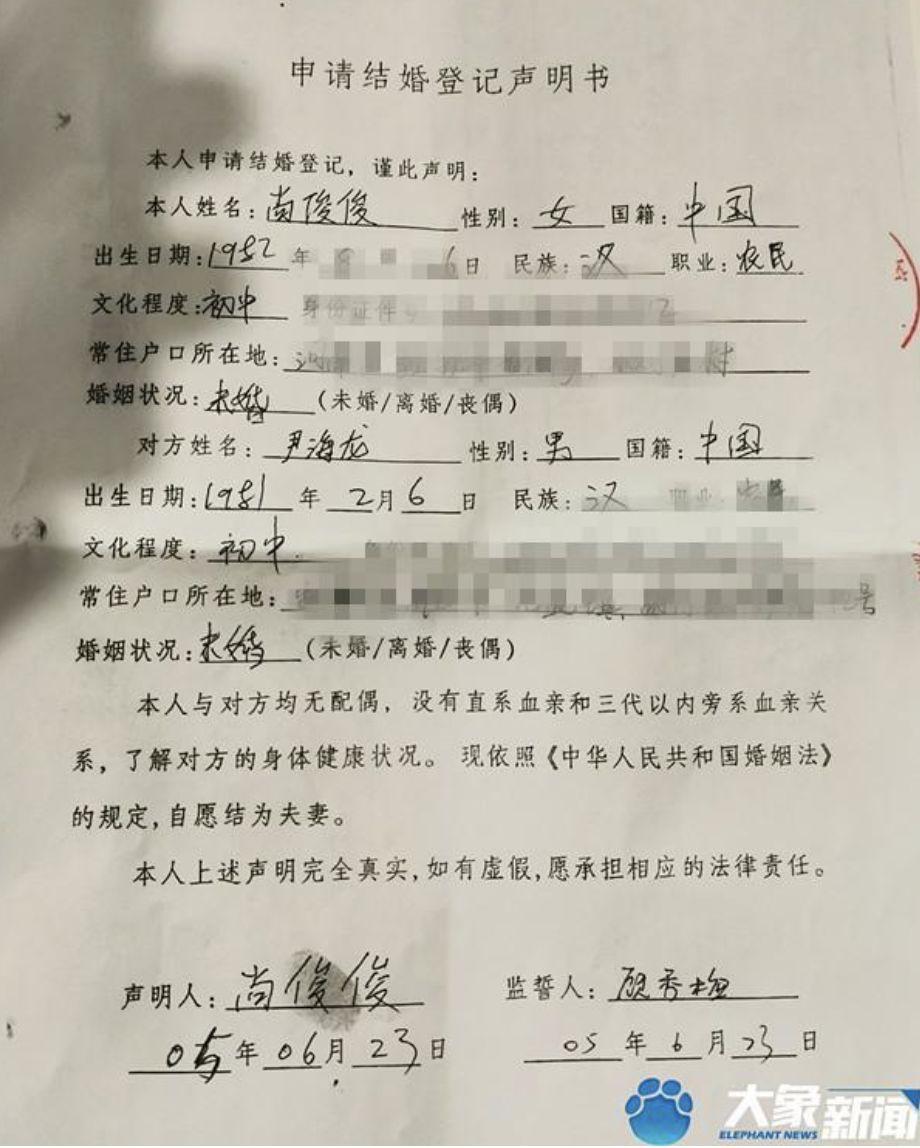 申请结婚登记声明书
本人申请结婚登记，谨此声明：
本人姓名：尚俊俊 性别：女 国籍：中国
出生日期：1982年 6日 民族：汉 职业：农民
文化程度：初中 身份证件
常住户口所在地： 村
婚姻状况：未婚（未婚/离婚/丧偶）
对方姓名：尹海龙 性别：男 国籍：中国
出生日期：1981年2月6日 民族：汉 职业：农民
文化程度：初中
常住户口所在地： 号
婚姻状况：未婚（未婚/离婚/丧偶）
本人与对方均无配偶，没有直系血亲和三代以内旁系血亲关
系，了解对方的身体健康状况。现依照《中华人民共和国婚姻法》
的规定，自愿结为夫妻。
本人上述声明完全真实，如有虚假，愿承担相应的法律责任。
声明人：尚俊俊 监誓人：顾秀梅
05年06月23日 05年6月23日
大象新闻
ELEPHANT NEWS